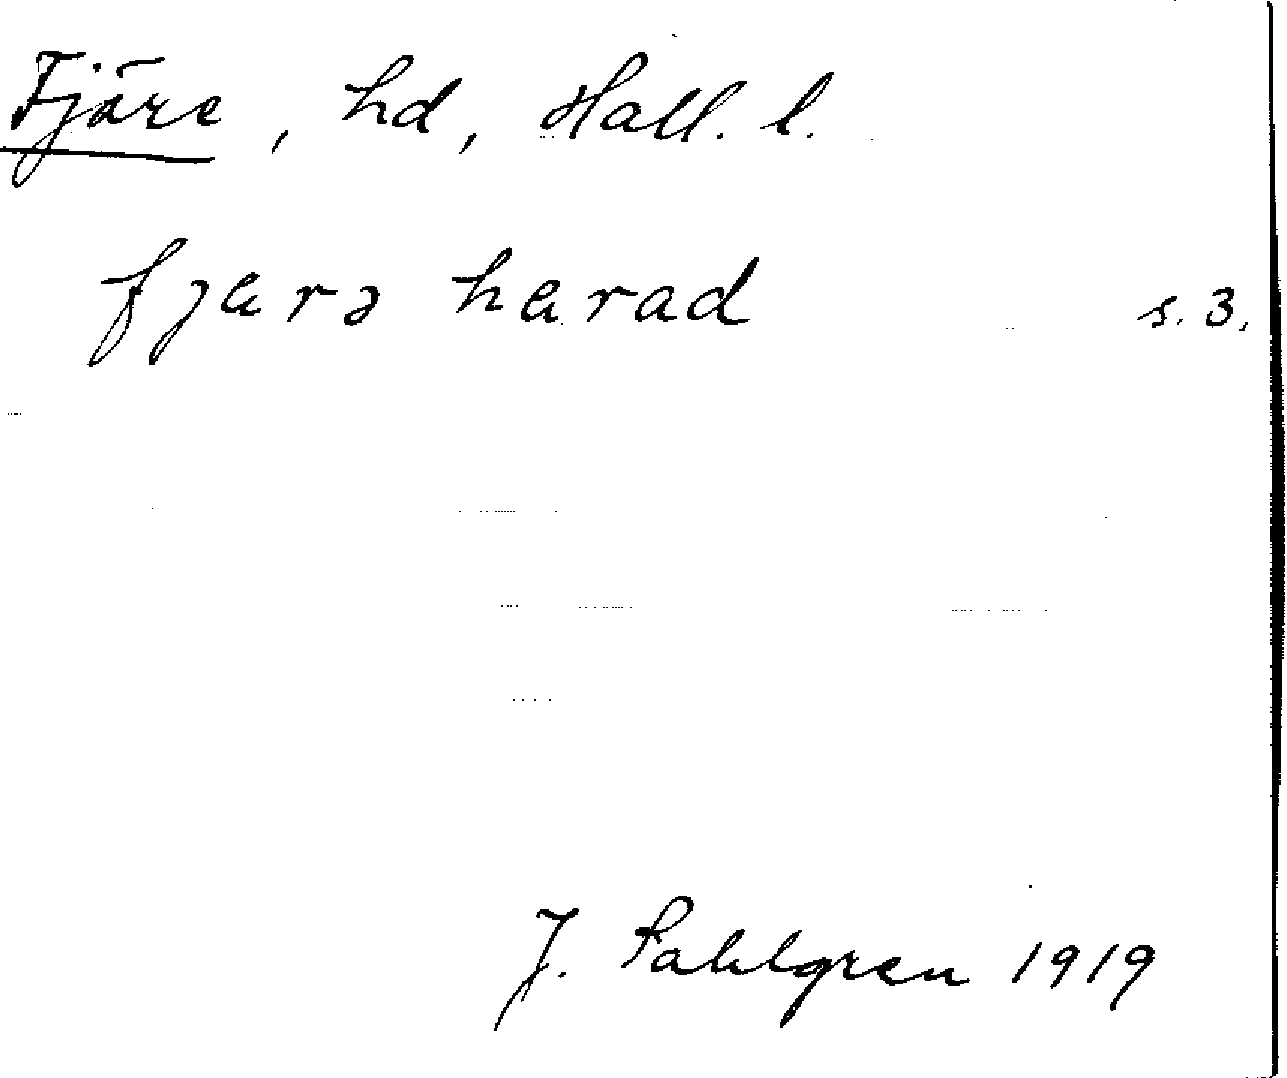 Fjäre, hd, Hall. l.
fjærə hærad s. 3.
J. Sahlgren 1919